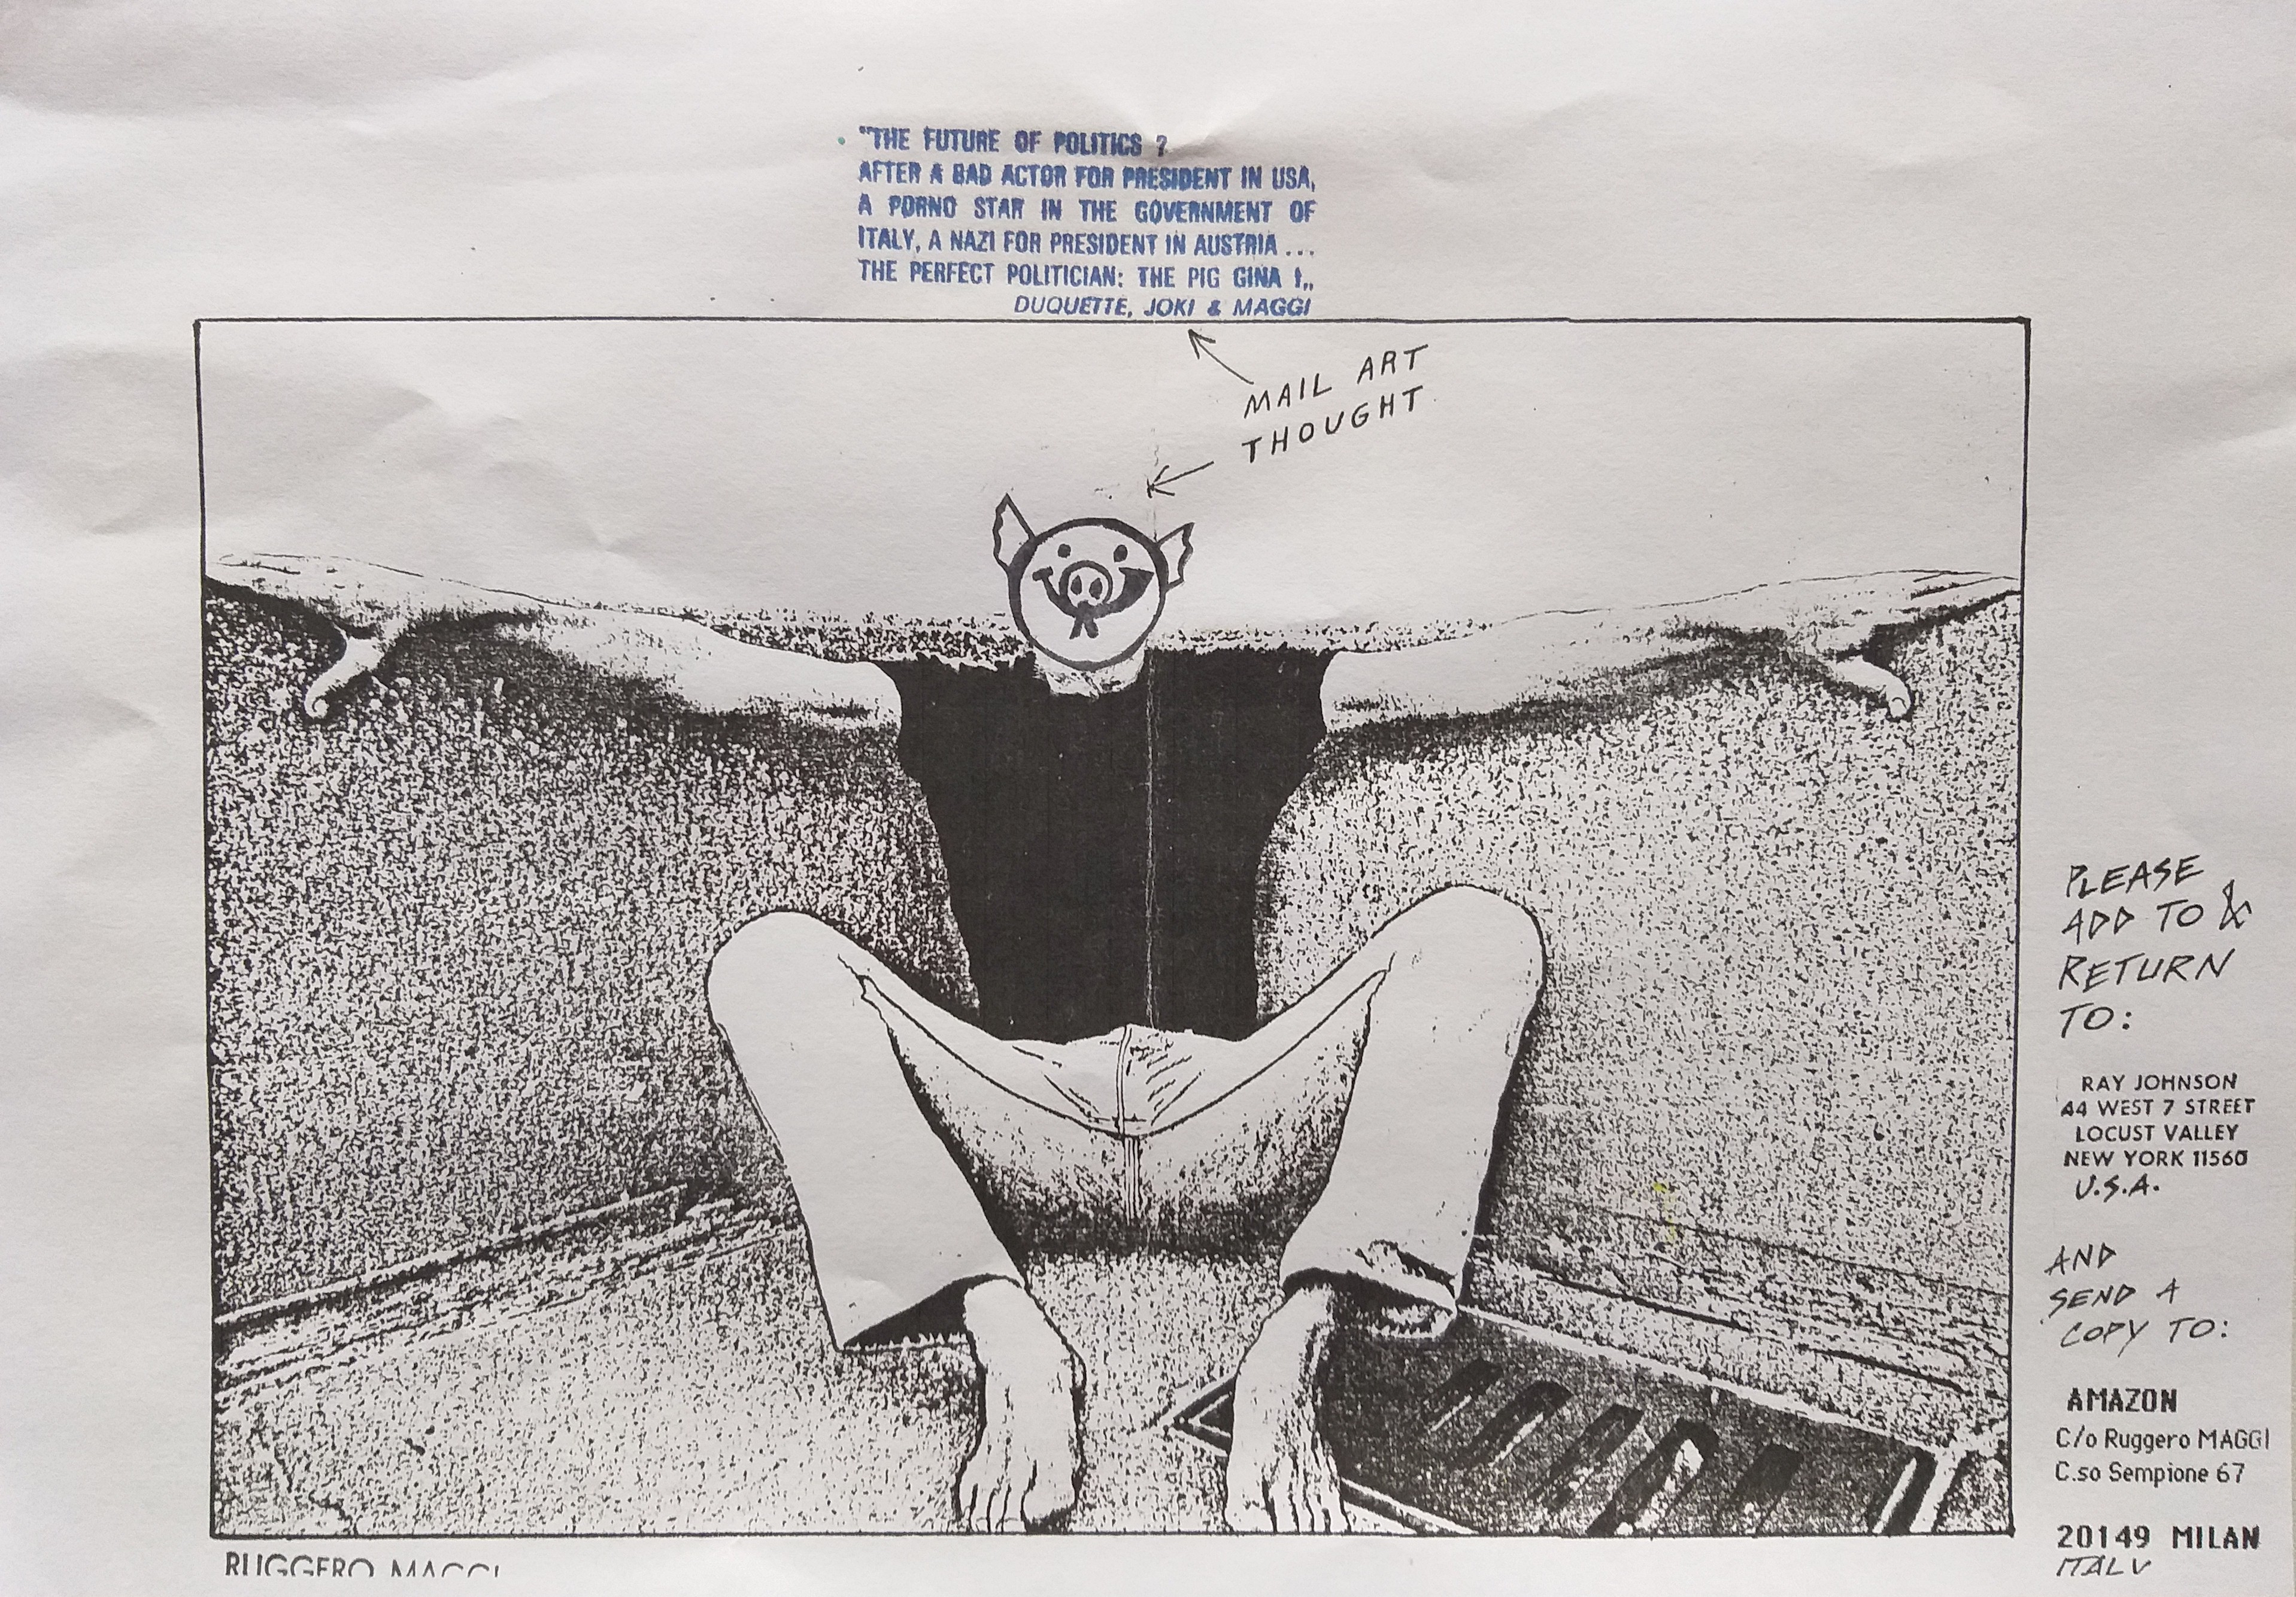 "THE FUTURE OF POLITICS ?
AFTER A BAD ACTOR FOR PRESIDENT IN USA,
A PORNO STAR IN THE GOVERNMENT OF
ITALY, A NAZI FOR PRESIDENT IN AUSTRIA ...
THE PERFECT POLITICIAN: THE PIG GINA !„
DUQUETTE, JOKI & MAGGI
MAIL ART
THOUGHT
PLEASE
ADD TO &
RETURN
TO:
RAY JOHNSON
44 WEST 7 STREET
LOCUST VALLEY
NEW YORK 11560
U.S.A.
AND
SEND A
COPY TO:
AMAZON
C/o Ruggero MAGGI
C.so Sempione 67
20149 MILAN
ITALY
RUGGERO MAGGI